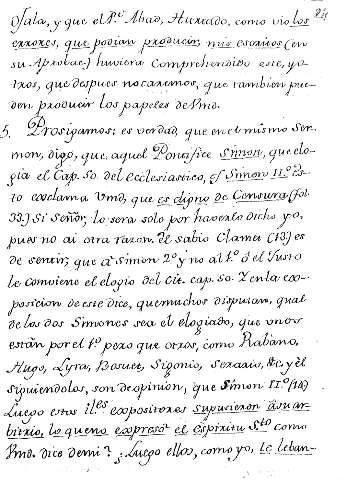 Osala, y que el P.e Abad, Hurtado, como vio los
errores, que podian producir, mis escritos (en
su Aprobac.) huviera Comprehendido este, y o-
tros, que despues notaremos, que tambien pue-
den producir los papeles de Vmd.
5. Prosigamos: es verdad, que en el mismo Ser-
mon, digo, que aquel Pontifice Simon, que elo-
gia el Cap. 50. del Ecclesiastico, es Simon II.o Es-
to exclama Vmd, que es digno de Censura (fol.
33.) Si Señor, lo sera solo por haverlo dicho yo,
pues no ai otra razon. el sabio Clamet (13) es
de sentir, que a Simon 2.o y no al 1.o ó el Justo
le Comviene el elogio del cit. cap. 50. Y en la ex-
posicion de este dice, que muchos disputan, qual
de los dos Simones sea el elogiado, que unos
están por el 1.o pero que otros, como Rabano,
Hugo, Lyra, Bosuet, Sigonio, Serario, &c. y el
siguiendolos, son de opinion, que Simon II.o (14)
Luego estos il.es expositores supusieron à su ar-
bitrio, lo que no expresó el espiritu S.to como
Vmd. dice de mi? ¿Luego ellos, como yo, le leban-